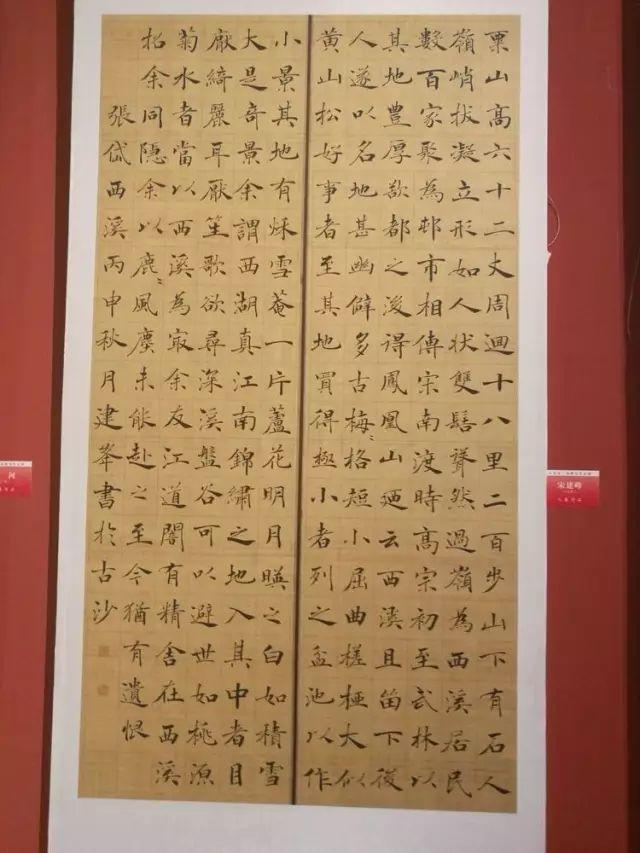 栗山高六十二丈周迴十八里二百步山下有石人
嶺峭拔凝立形如人狀雙髻聳然過嶺為西溪居民
數百家聚為邨市相傳宋南渡時高宗初至武林以
其地豐厚欲都之後得鳳凰山迺云西溪且留下後
人遂以名地甚幽僻多古梅〻格短小屈曲槎枒大似
黃山松好事者至其地買得極小者列之盆池以作
小景其地有秌雪菴一片蘆花明月暎之白如積雪
大是奇景余謂西湖真江南錦繡之地入其中者目
厭綺麗耳厭笙歌欲尋深溪盤谷可以避世如桃源
菊水者當以西溪為冣余友江道闇有精舍在西溪
招余同隱余以鹿〻風塵未能赴之至今猶有遺恨
張岱西溪丙申秋月建峯書於古沙
宋建峰
河